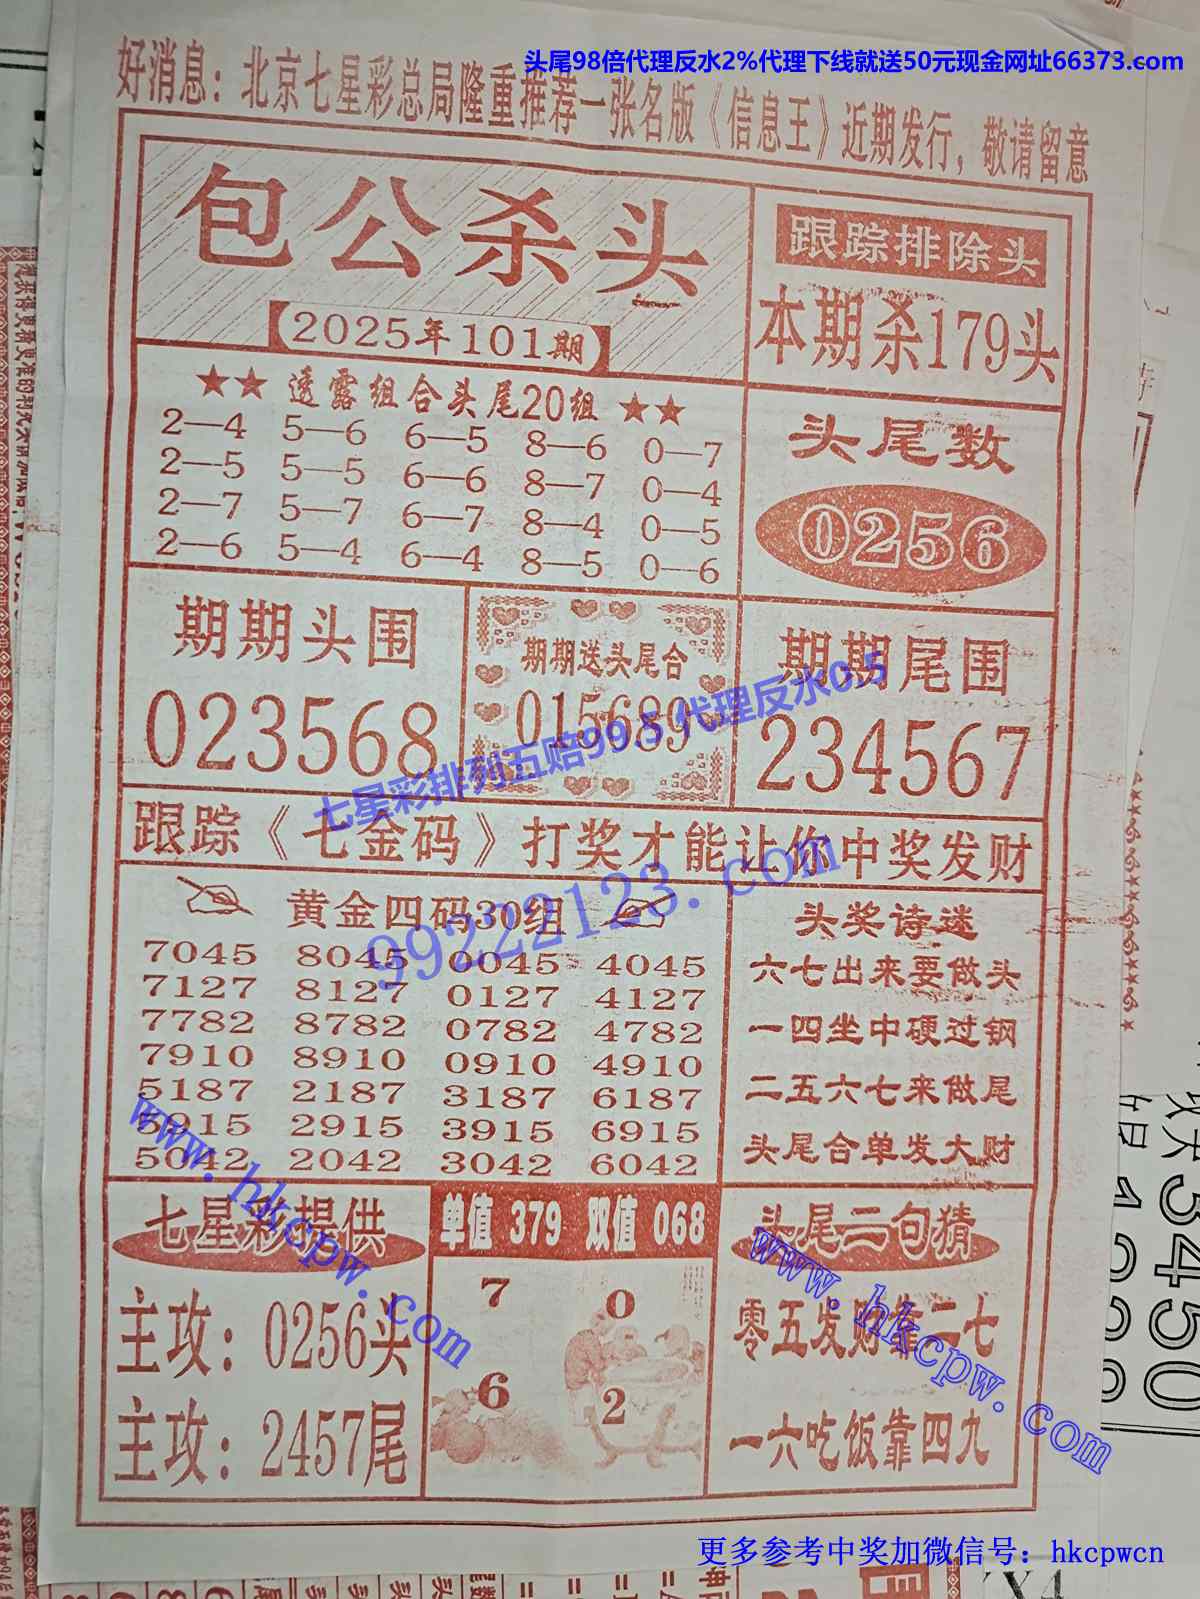 头尾98倍代理反水2%代理下线就送50元现金网址66373.com
好消息：北京七星彩总局隆重推荐一张名版《信息王》近期发行，敬请留意
包公杀头
【2025年101期】
跟踪排除头
本期杀179头
★★ 透露组合头尾20组 ★★
2—4 5—6 6—5 8—6 0—7
2—5 5—5 6—6 8—7 0—4
2—7 5—7 6—7 8—4 0—5
2—6 5—4 6—4 8—5 0—6
头尾数
0256
期期头围
023568
期期送头尾合
015689
期期尾围
234567
七星彩排列五赔99.5 代理反水0.5
跟踪《七金码》打奖才能让你中奖发财
99222123.com
黄金四码30组
7045 8045 0045 4045
7127 8127 0127 4127
7782 8782 0782 4782
7910 8910 0910 4910
5187 2187 3187 6187
5915 2915 3915 6915
5042 2042 3042 6042
头奖诗迷
六七出来要做头
一四坐中硬过钢
二五六七来做尾
头尾合单发大财
www.hkcpw.com
七星彩提供
主攻：0256头
主攻：2457尾
单值 379 双值 068
7 0
6 2
头尾二句猜
零五发财靠二七
一六吃饭靠四九
www.hkcpw.com
更多参考中奖加微信号：hkcpwcn